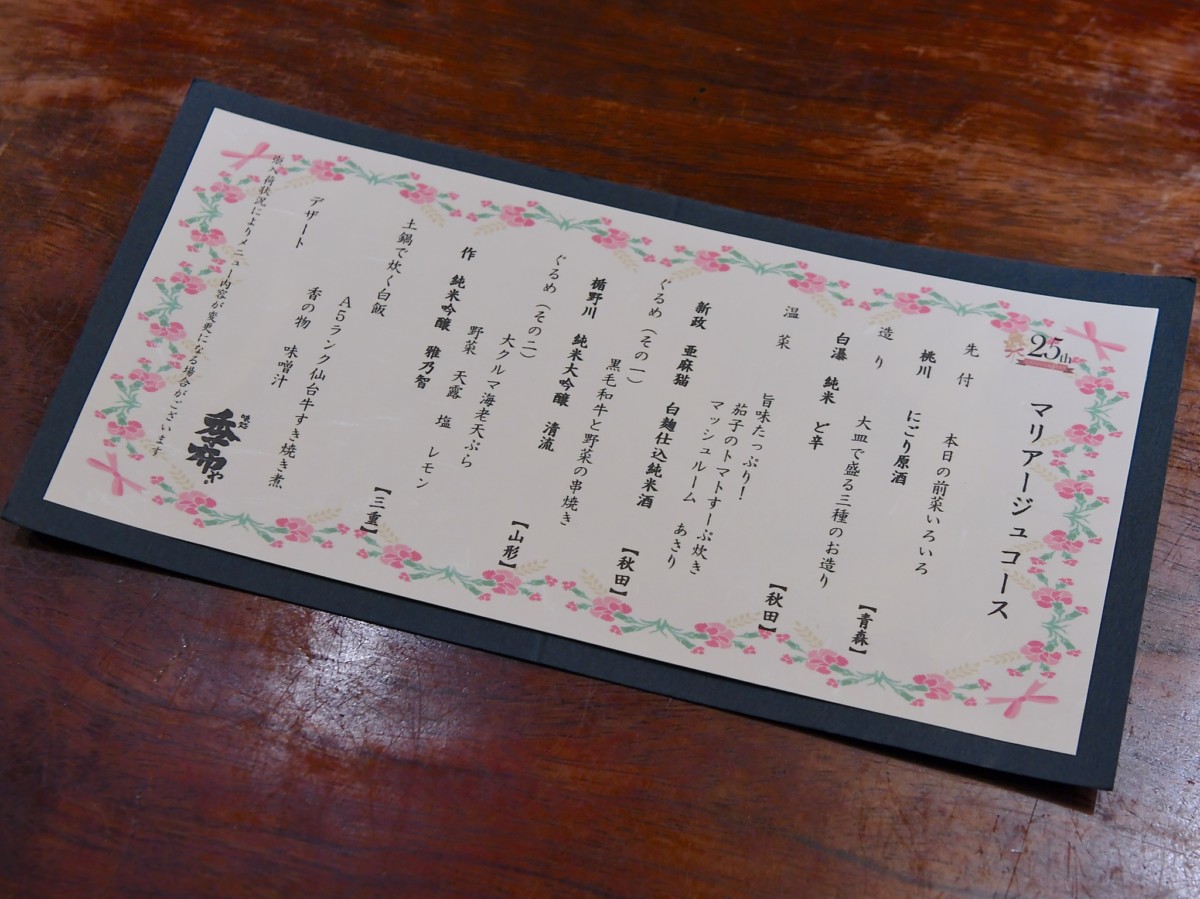 25th
マリアージュコース
先付
本日の前菜いろいろ
桃川 にごり原酒 【青森】
造り
大皿で盛る三種のお造り
白瀑 純米 ど辛 【秋田】
温菜
旨味たっぷり!
茄子のトマトすーぷ炊き
マッシュルーム あさり
新政 亜麻猫 白麹仕込純米酒 【秋田】
ぐるめ(その一)
黒毛和牛と野菜の串焼き
楯野川 純米大吟醸 清流 【山形】
ぐるめ(その二)
大クルマ海老天ぷら
野菜 天露 塩 レモン
作 純米吟醸 雅乃智 【三重】
土鍋で炊く白飯
A5ランク仙台牛すき焼き煮
香の物 味噌汁
デザート
入荷状況によりメニュー内容が変更になる場合がございます